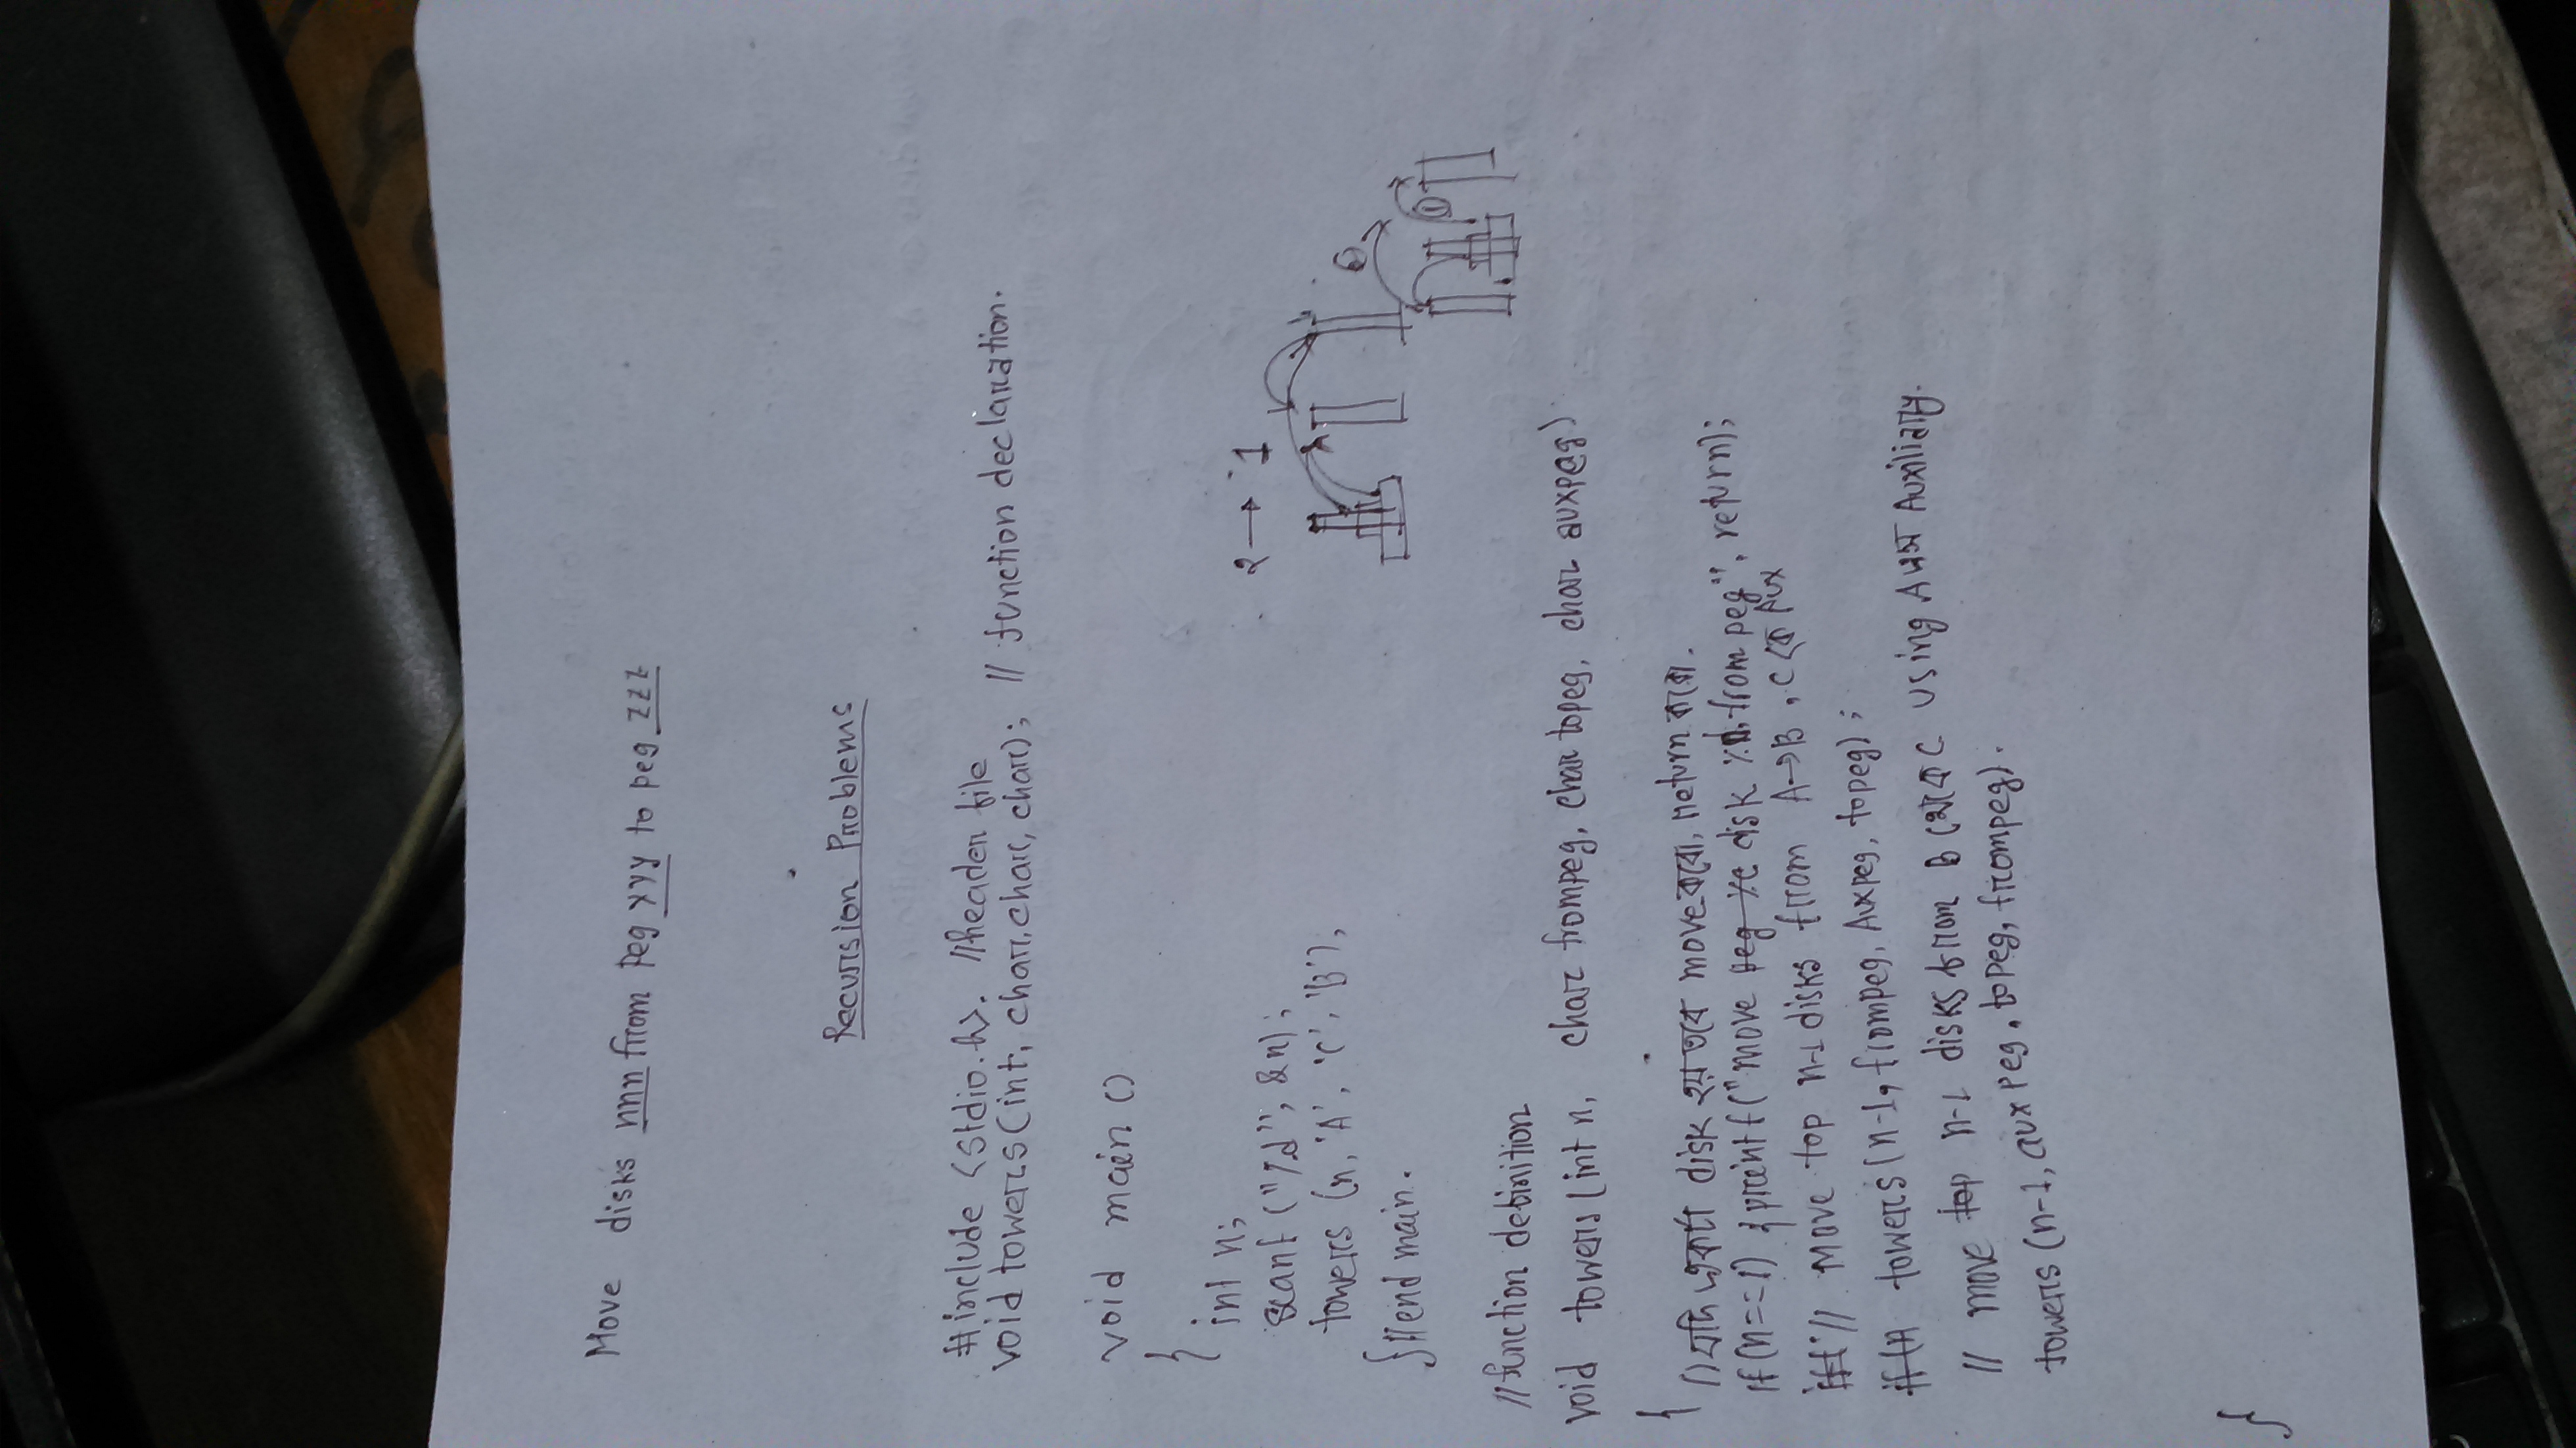 Move disks nnn from peg yyy to peg zzz
Recursion Problems
#include <stdio.h>. //header file
void towers(int, char, char, char); // function declaration.
void main ()
{
int n;
scanf ("%d", &n);
towers (n, 'A', 'C', 'B');
} //end main.
2 → 1
//function definition
void towers (int n, char frompeg, char topeg, char auxpeg)
{
// যদি ১টা disk হয় তবে move করো, return করো.
if (n==1) { printf ("move peg %c disk %d from peg", return);
// Move top n-1 disks from A→B, C কে Aux
towers (n-1, frompeg, Auxpeg, topeg);
// move top n-1 disks from B থেকে C using A as Auxiliary.
towers (n-1, auxpeg, topeg, frompeg).
}